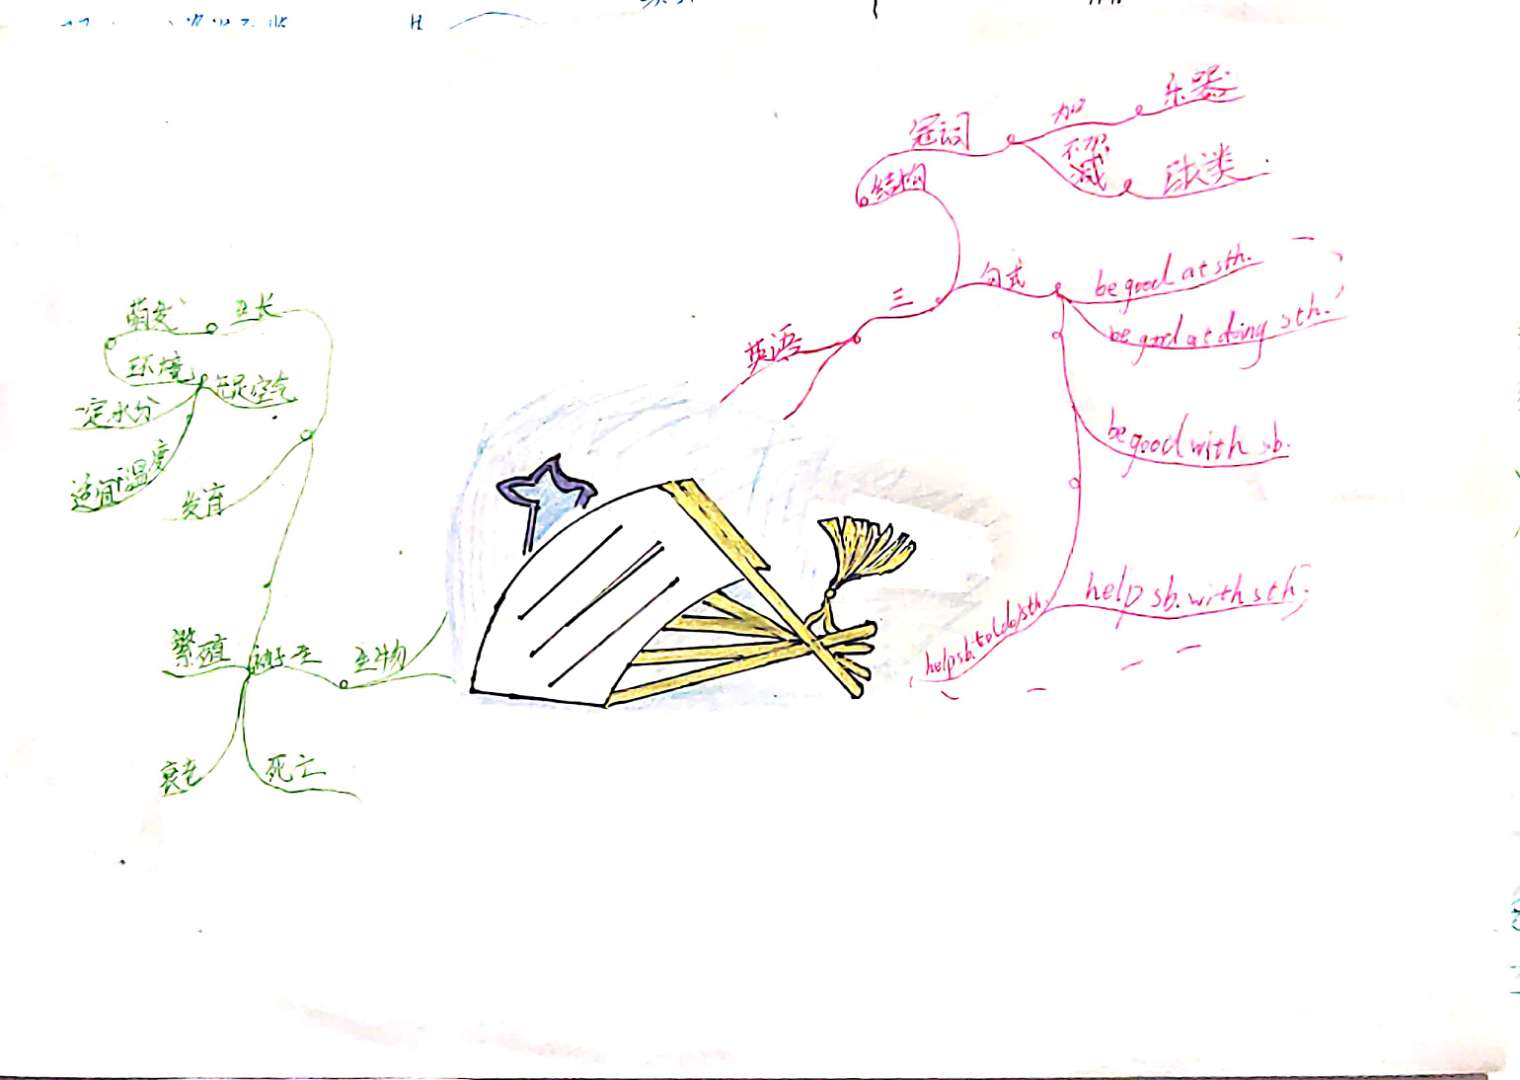 冠词
加
乐器
不加
减
球类
结构
句式
be good at sth.
be good at doing sth.
be good with sb.
help sb. with sth.
help sb. to (do) sth.
三
英语
生长
萌发
环境
充足空气
一定水分
适宜温度
发育
繁殖
生物
衰老
死亡